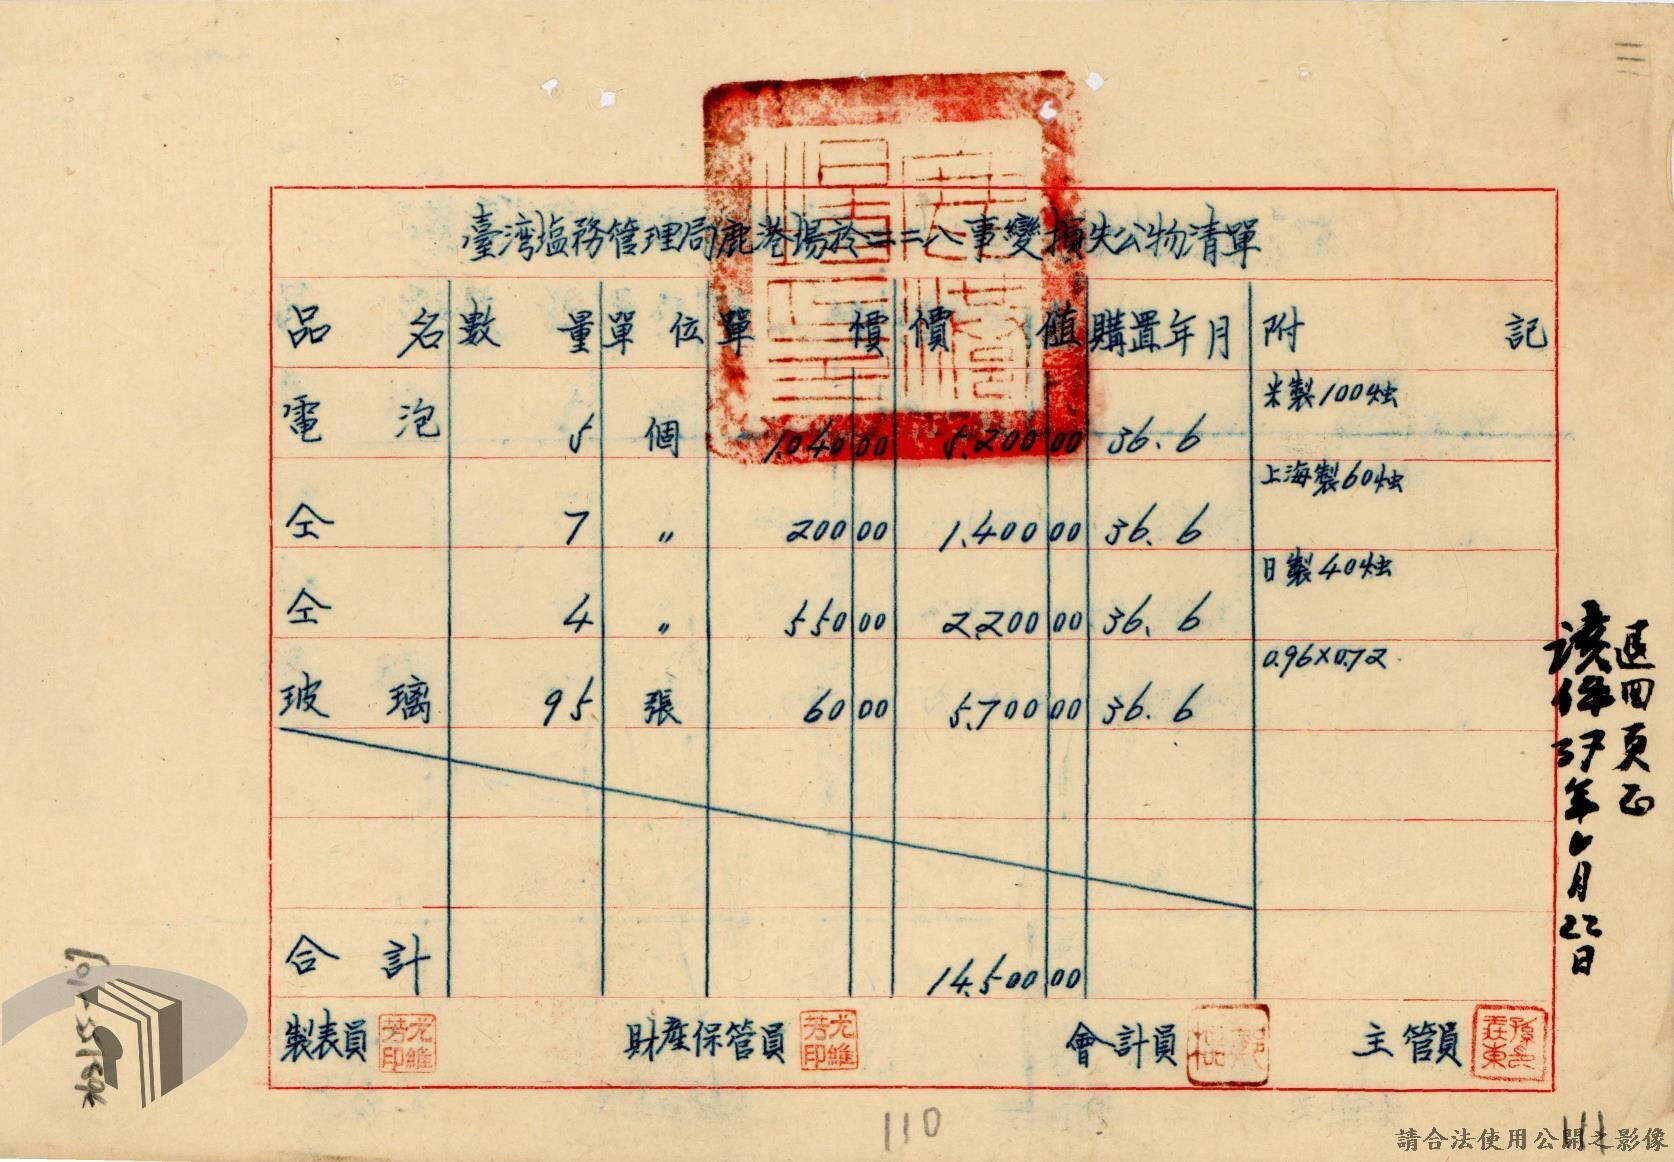 臺灣塩務管理局鹿港場於二二八事變損失公物清單
品名 數量 單位 單價 價值 購置年月 附記
電泡 5 個 1.040 00 5.200 00 36.6 米製100烛
仝 7 〃 200 00 1.400 00 36.6 上海製60烛
仝 4 〃 550 00 2.200 00 36.6 日製40烛
玻璃 95 張 60 00 5.700 00 36.6 0.96×0.72
合計 14.500 00
製表員 尤維芳印 財產保管員 尤維芳印 會計員 主管員
37年6月22日
110
111
請合法使用公開之影像